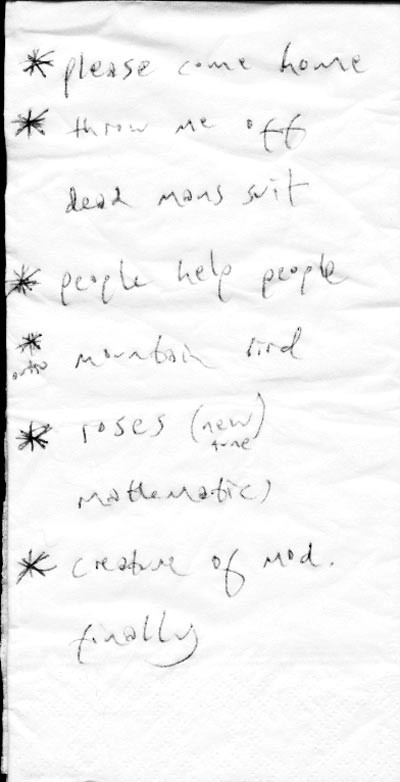 * please come home
* throw me off
dead mans suit
* people help people
* mountain bird
intro
* roses (new
tune)
mathematics
* creature of mod.
finally